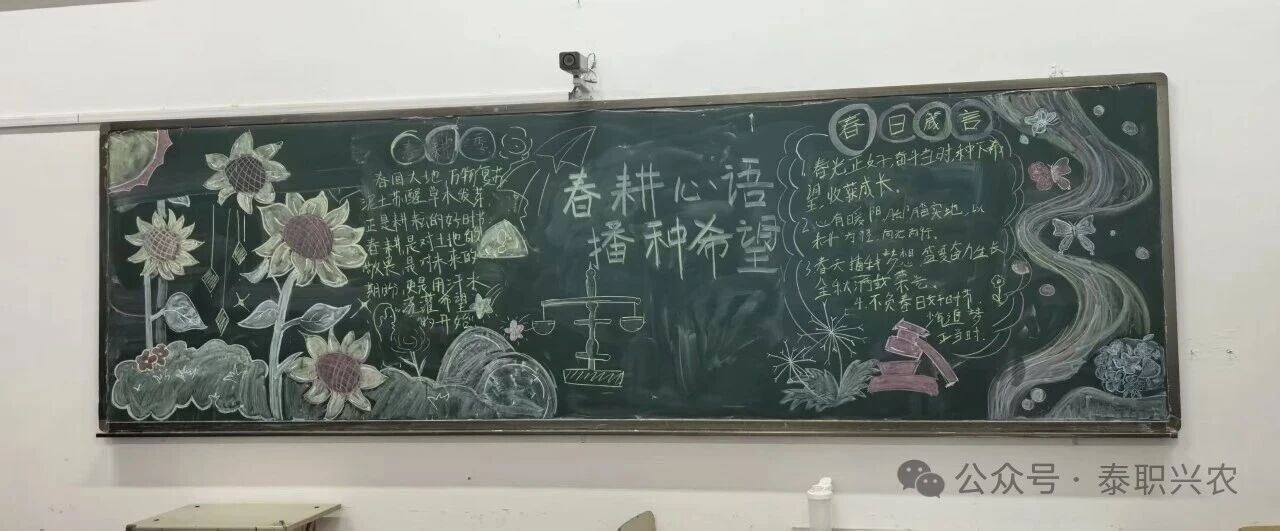 春耕季
春回大地,万物复苏
泥土苏醒草木发芽
正是耕耘的好时节。
春耕是对土地的
是对未来的
期盼,更是用汗水
浇灌希望
的开始
春耕心语
播种希望
春日箴言
1.春光正好,奋斗当时,种下希
望,收获成长。
2.心有暖阳,脚踏实地,以
为径,向光而行。
3.春天播种梦想,盛夏奋力生长
金秋满载荣光。
4.不负春日好时节,
追梦
正当时.
公众号·泰职兴农